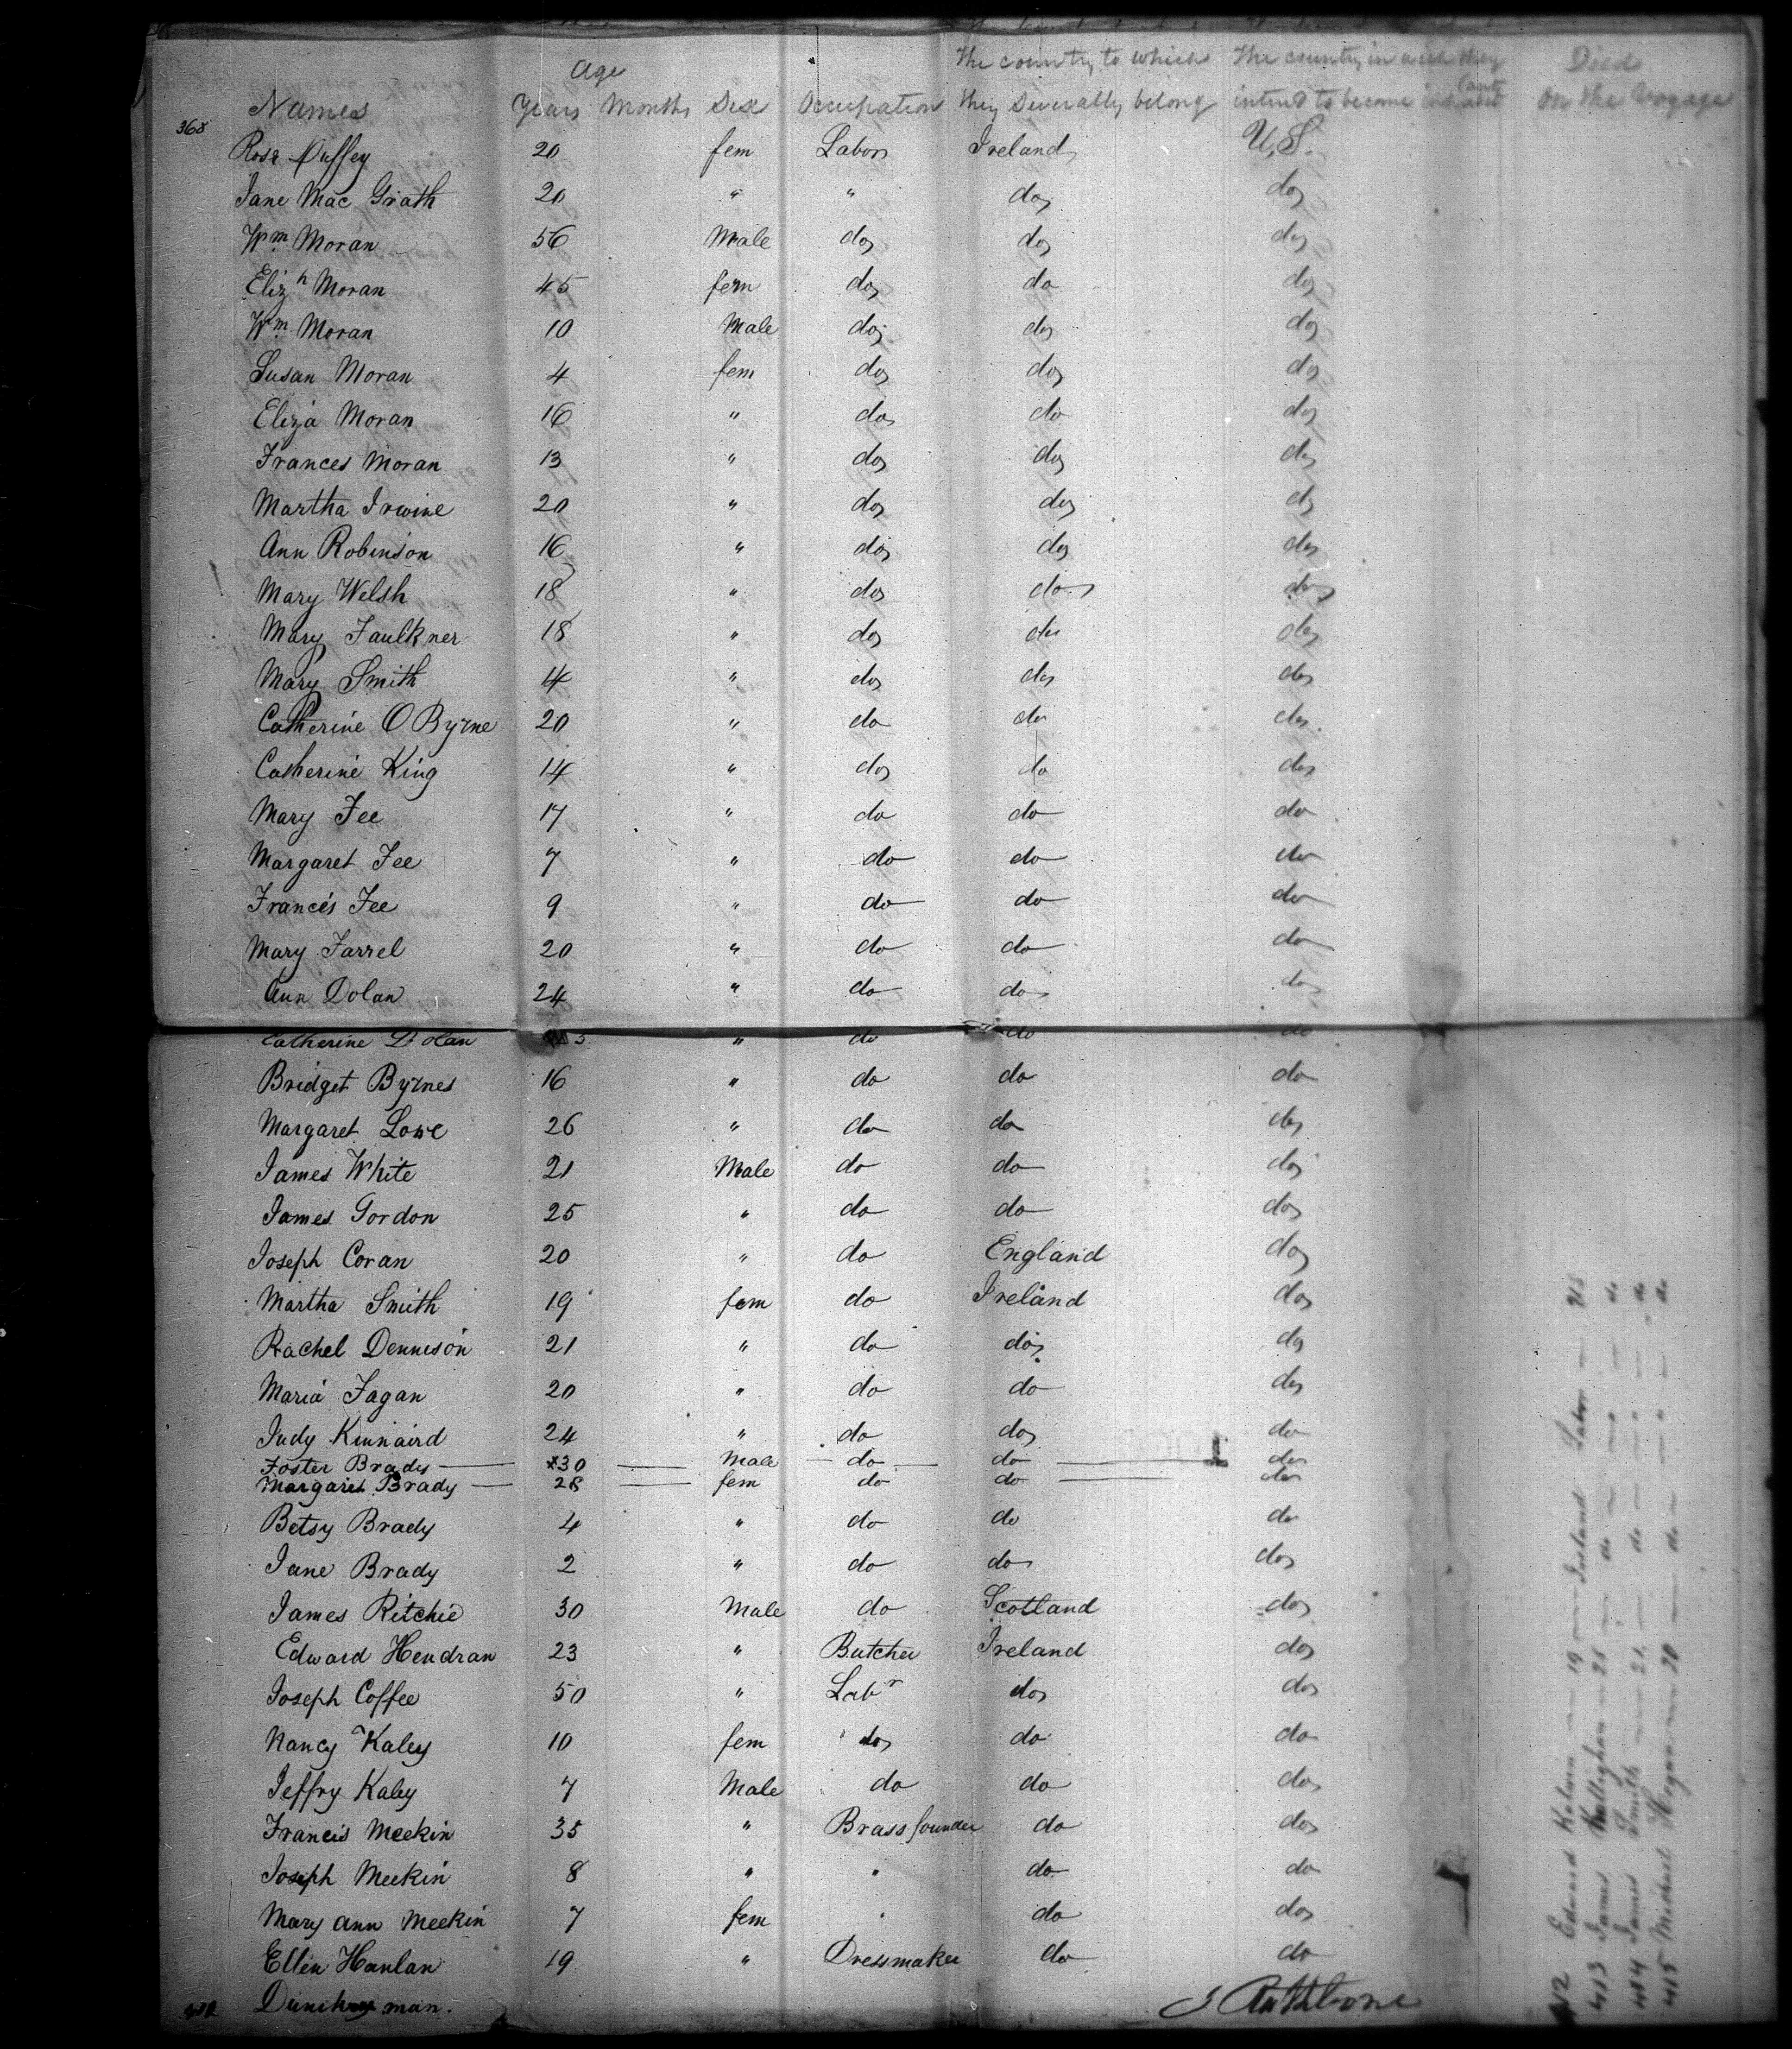 Age The country to which The country in which they Died
Names Years Months Sex Occupation they Severally belong intend to become inhabitant On the Voyage
368
Rose Duffey 20 fem Labor Ireland U,S.
Jane Mac Grath 20 " " do do
Wm Moran 56 Male do do do
Elizh Moran 45 fem do do do
Wm Moran 10 Male do do do
Susan Moran 4 fem do do do
Eliza Moran 16 " do do do
Frances Moran 13 " do do do
Martha Irwine 20 " do do do
Ann Robinson 16 " do do do
Mary Welsh 18 " do do do
Mary Faulkner 18 " do do do
Mary Smith 14 " do do do
Catherine O Byrne 20 " do do do
Catherine King 14 " do do do
Mary Fee 17 " do do do
Margaret Fee 7 " do do do
Francés Fee 9 " do do do
Mary Farrel 20 " do do do
Ann Dolan 24 " do do do
Catherine Dolan " do do do
Bridget Byrnes 16 " do do do
Margaret Lowe 26 " do do do
James White 21 Male do do do
James Gordon 25 " do do do
Joseph Coran 20 " do England do
Martha Smith 19 fem do Ireland do
Rachel Dennison 21 " do do do
Maria Fagan 20 " do do do
Judy Kinnaird 24 " do do do
Foster Brady 30 Male do do do
Margaret Brady 28 fem do do do
Betsy Brady 4 " do do do
Jane Brady 2 " do do do
James Ritchie 30 Male do Scotland do
Edward Hendran 23 " Butcher Ireland do
Joseph Coffee 50 " Labr do do
Nancy Kaley 10 fem do do do
Jeffry Kaley 7 Male do do do
Francis Meekin 35 " Brass founder do do
Joseph Meekin 8 " " do do
Mary Ann Meekin 7 fem " do do
Ellen Hanlan 19 " Dressmaker do do
man. Rathbone
Edward 19 Ireland Labor US
413 James Kallighan 25 do do
414 James Smith 21 do do
415 Michael Hogan 20 do do